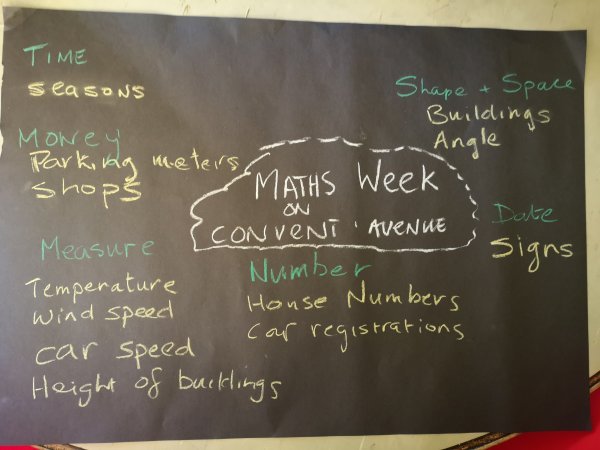 TIME
SEASONS
MONEY
Parking meters
Shops
Shape + Space
Buildings
Angle
MATHS Week
ON
CONVENT · AVENUE
Date
Signs
Measure
Temperature
Wind speed
Car speed
Height of buildings
Number
House Numbers
Car registrations